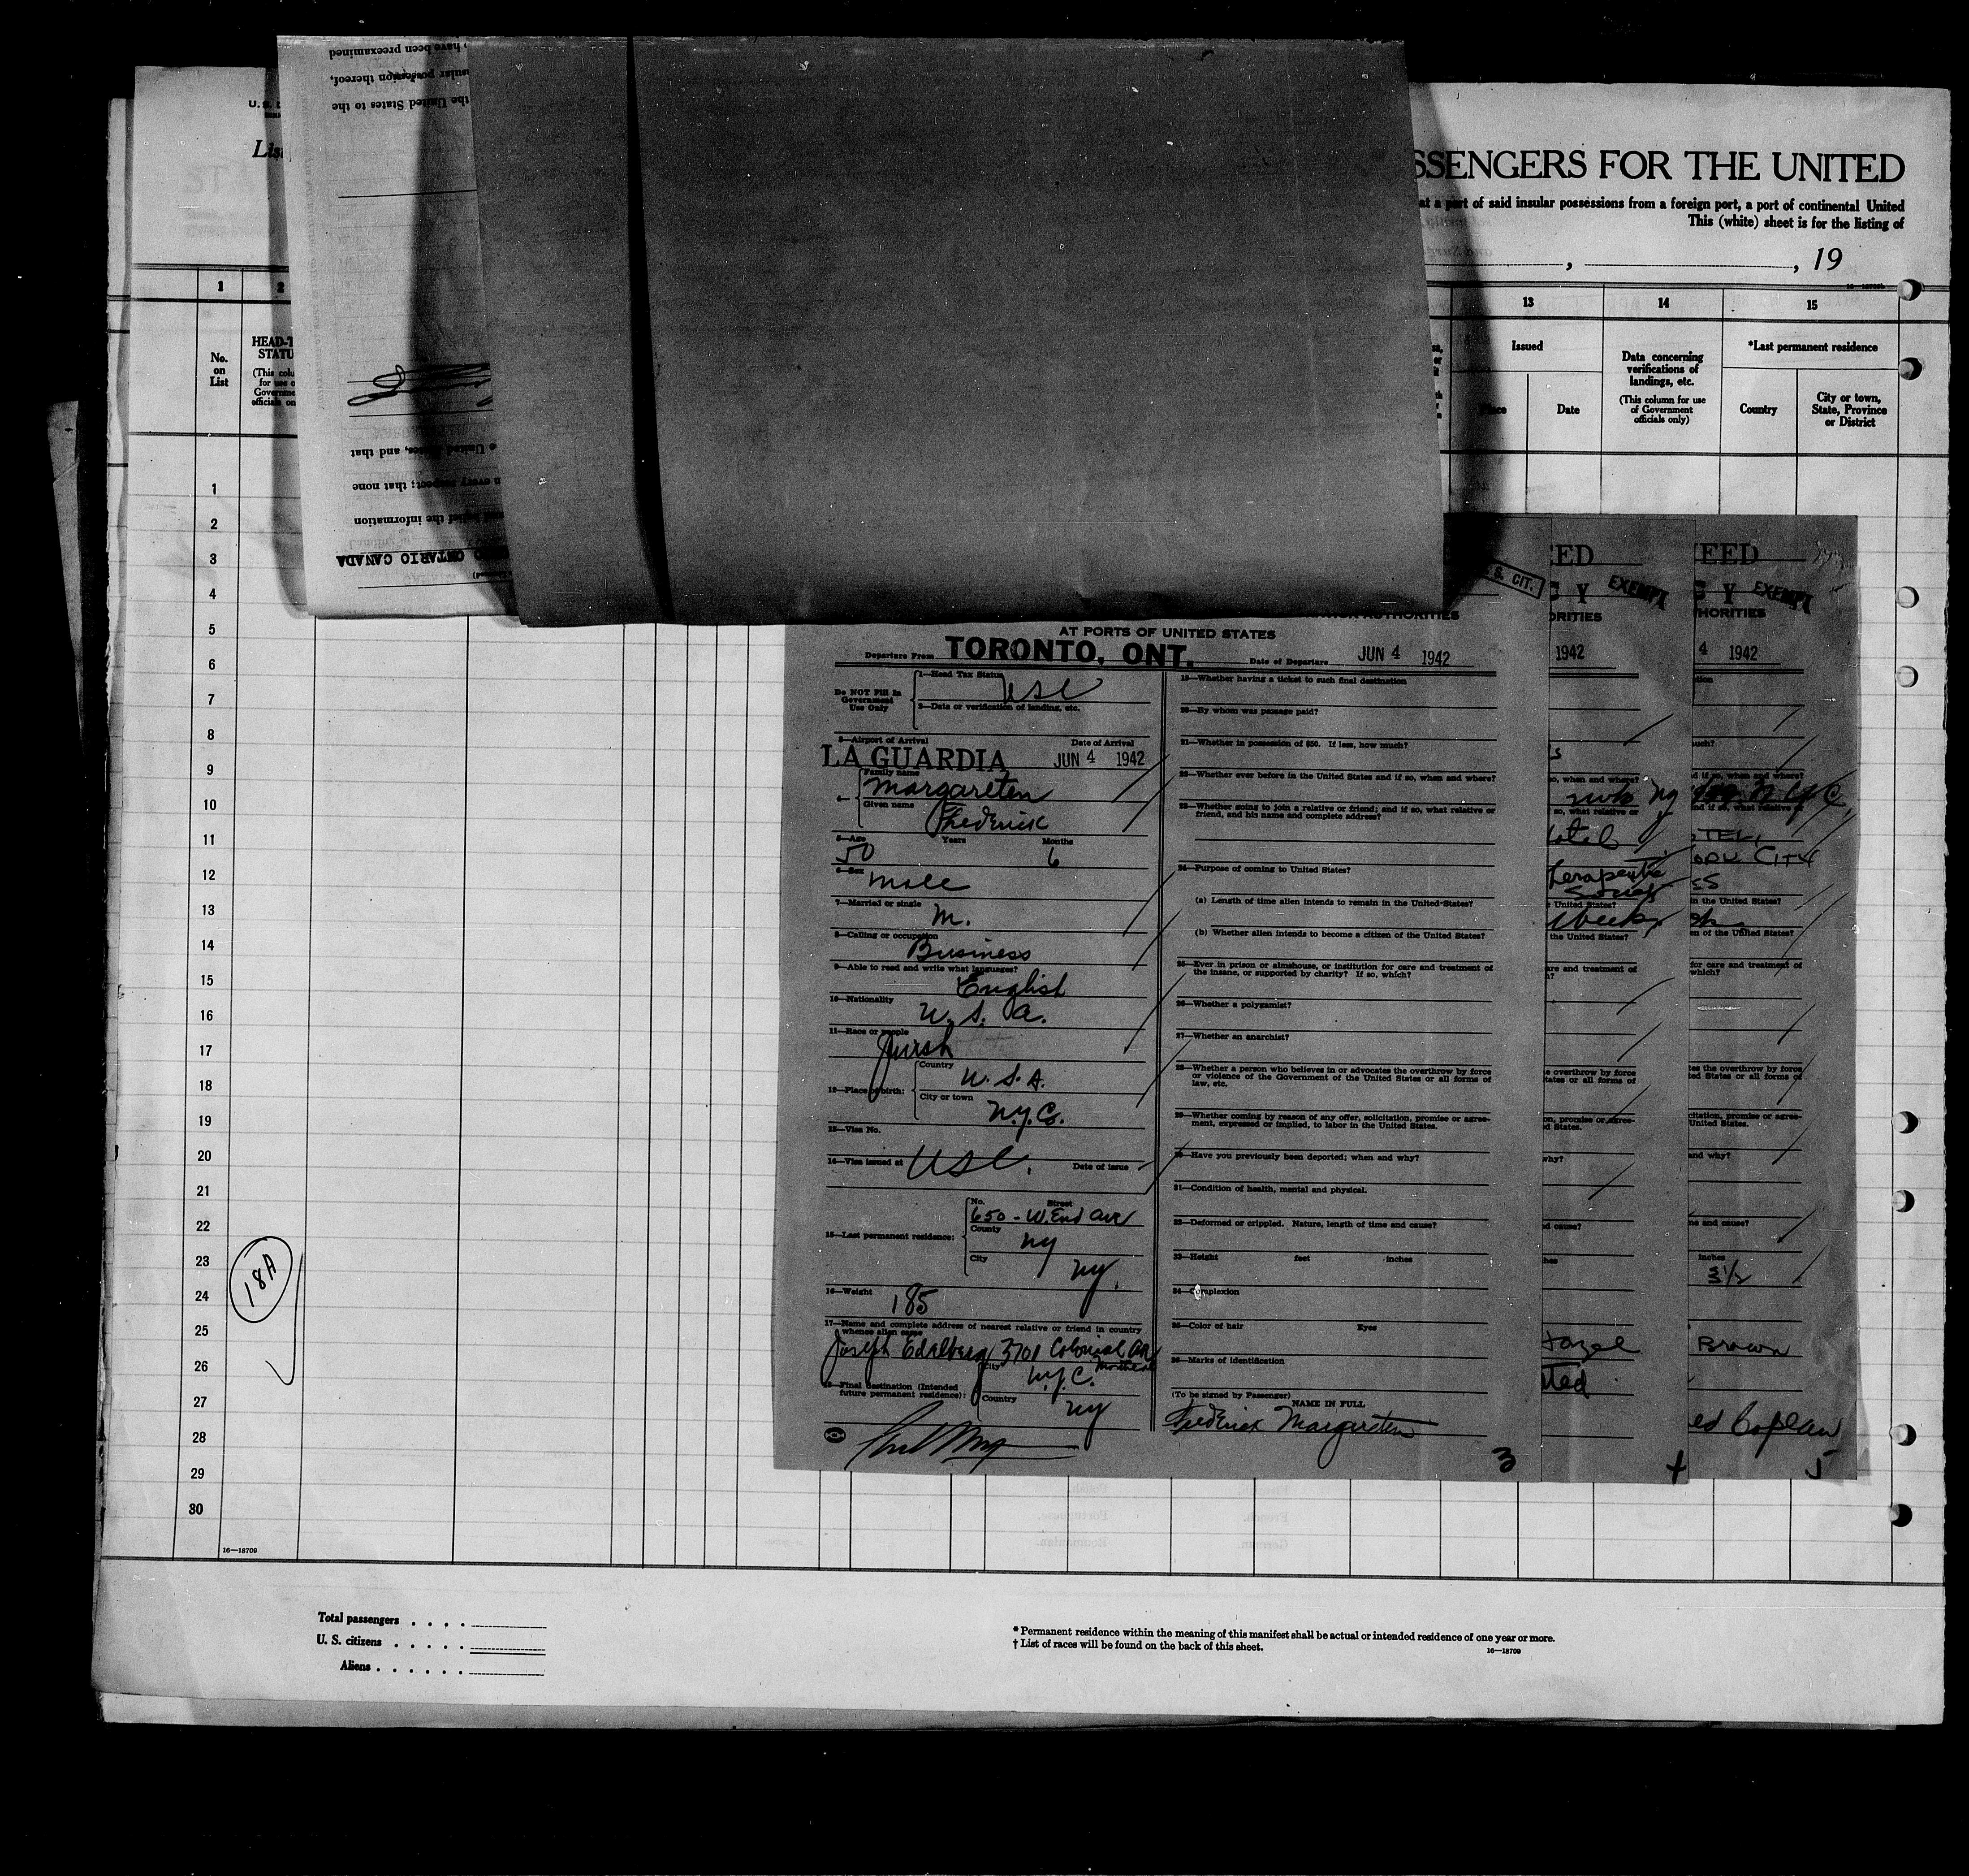 have been preexamined
insular possession thereof,
the United States to the
e United States, and that
n every respect; that none
belief the information
ONTARIO CANADA
U. S.
List
SSENGERS FOR THE UNITED
at a port of said insular possessions from a foreign port, a port of continental United
This (white) sheet is for the listing of
, , 19
1 2 13 14 15
No. on List
HEAD-T
STATU
(This colu
for use o
Governme
officials on
Issued
Place Date
Data concerning verifications of landings, etc.
(This column for use of Government officials only)
*Last permanent residence
Country
City or town, State, Province or District
1
2
3
4
5
6
7
8
9
10
11
12
13
14
15
16
17
18
19
20
21
22
23
24
25
26
27
28
29
30
18A
16—18709
S. CIT.
AT PORTS OF UNITED STATES
Departure From TORONTO, ONT. Date of Departure JUN 4 1942
Do NOT Fill In
Government
Use Only
1—Head Tax Status USC
2—Data or verification of landing, etc.
3—Airport of Arrival Date of Arrival
LA GUARDIA JUN 4 1942
Family name
Margareten
Given name
Frederick
5—Age Years Months
50 6
6—Sex
Male
7—Married or single
M.
8—Calling or occupation
Business
9—Able to read and write what languages?
English
10—Nationality
U. S. A.
11—Race or people
Country
U. S. A.
12—Place of birth:
City or town
N.Y.C.
13—Visa No.
14—Visa issued at USC. Date of issue
No. Street
650 - W. End Ave
County
NY
15—Last permanent residence:
City
NY.
16—Weight
185
17—Name and complete address of nearest relative or friend in country
whence alien came
Joseph Edelberg 3701 Colonial Ave
Montreal
City
N.Y.C.
18—Final destination (Intended
future permanent residence):
Country
NY
19—Whether having a ticket to such final destination
20—By whom was passage paid?
21—Whether in possession of $50. If less, how much?
22—Whether ever before in the United States and if so, when and where?
23—Whether going to join a relative or friend; and if so, what relative or
friend, and his name and complete address?
24—Purpose of coming to United States?
(a) Length of time alien intends to remain in the United States?
(b) Whether alien intends to become a citizen of the United States?
25—Ever in prison or almshouse, or institution for care and treatment of
the insane, or supported by charity? If so, which?
26—Whether a polygamist?
27—Whether an anarchist?
28—Whether a person who believes in or advocates the overthrow by force
or violence of the Government of the United States or all forms of
law, etc.
29—Whether coming by reason of any offer, solicitation, promise or agree-
ment, expressed or implied, to labor in the United States.
30—Have you previously been deported; when and why?
31—Condition of health, mental and physical.
32—Deformed or crippled. Nature, length of time and cause?
33—Height feet inches
34—Complexion
35—Color of hair Eyes
36—Marks of identification
(To be signed by Passenger)
NAME IN FULL
Frederick Margareten
3
EED
G Y EXEMPT
ORITIES
1942
so, when and where?
so, what relative or
Hotel
Therapeutic
e United States?
Weeks
the United States?
are and treatment of
e overthrow by force
tates or all forms of
on, promise or agree-
d States.
why?
d cause?
hes
Hazel
4
EED
G Y EXEMPT
HORITIES
4 1942
tion
uch?
d if so, when and where?
N Y C
nd if so, what relative or
OTEL,
ORK CITY
ESS
in the United States?
en of the United States?
for care and treatment of
which?
tes the overthrow by force
ted States or all forms of
citation, promise or agree-
United States.
and why?
ne and cause?
inches
3 1/2
Brown
ed Coplan
5
Total passengers . . . .
U. S. citizens . . . . .
Aliens . . . . . .
* Permanent residence within the meaning of this manifest shall be actual or intended residence of one year or more.
† List of races will be found on the back of this sheet.
16—18709